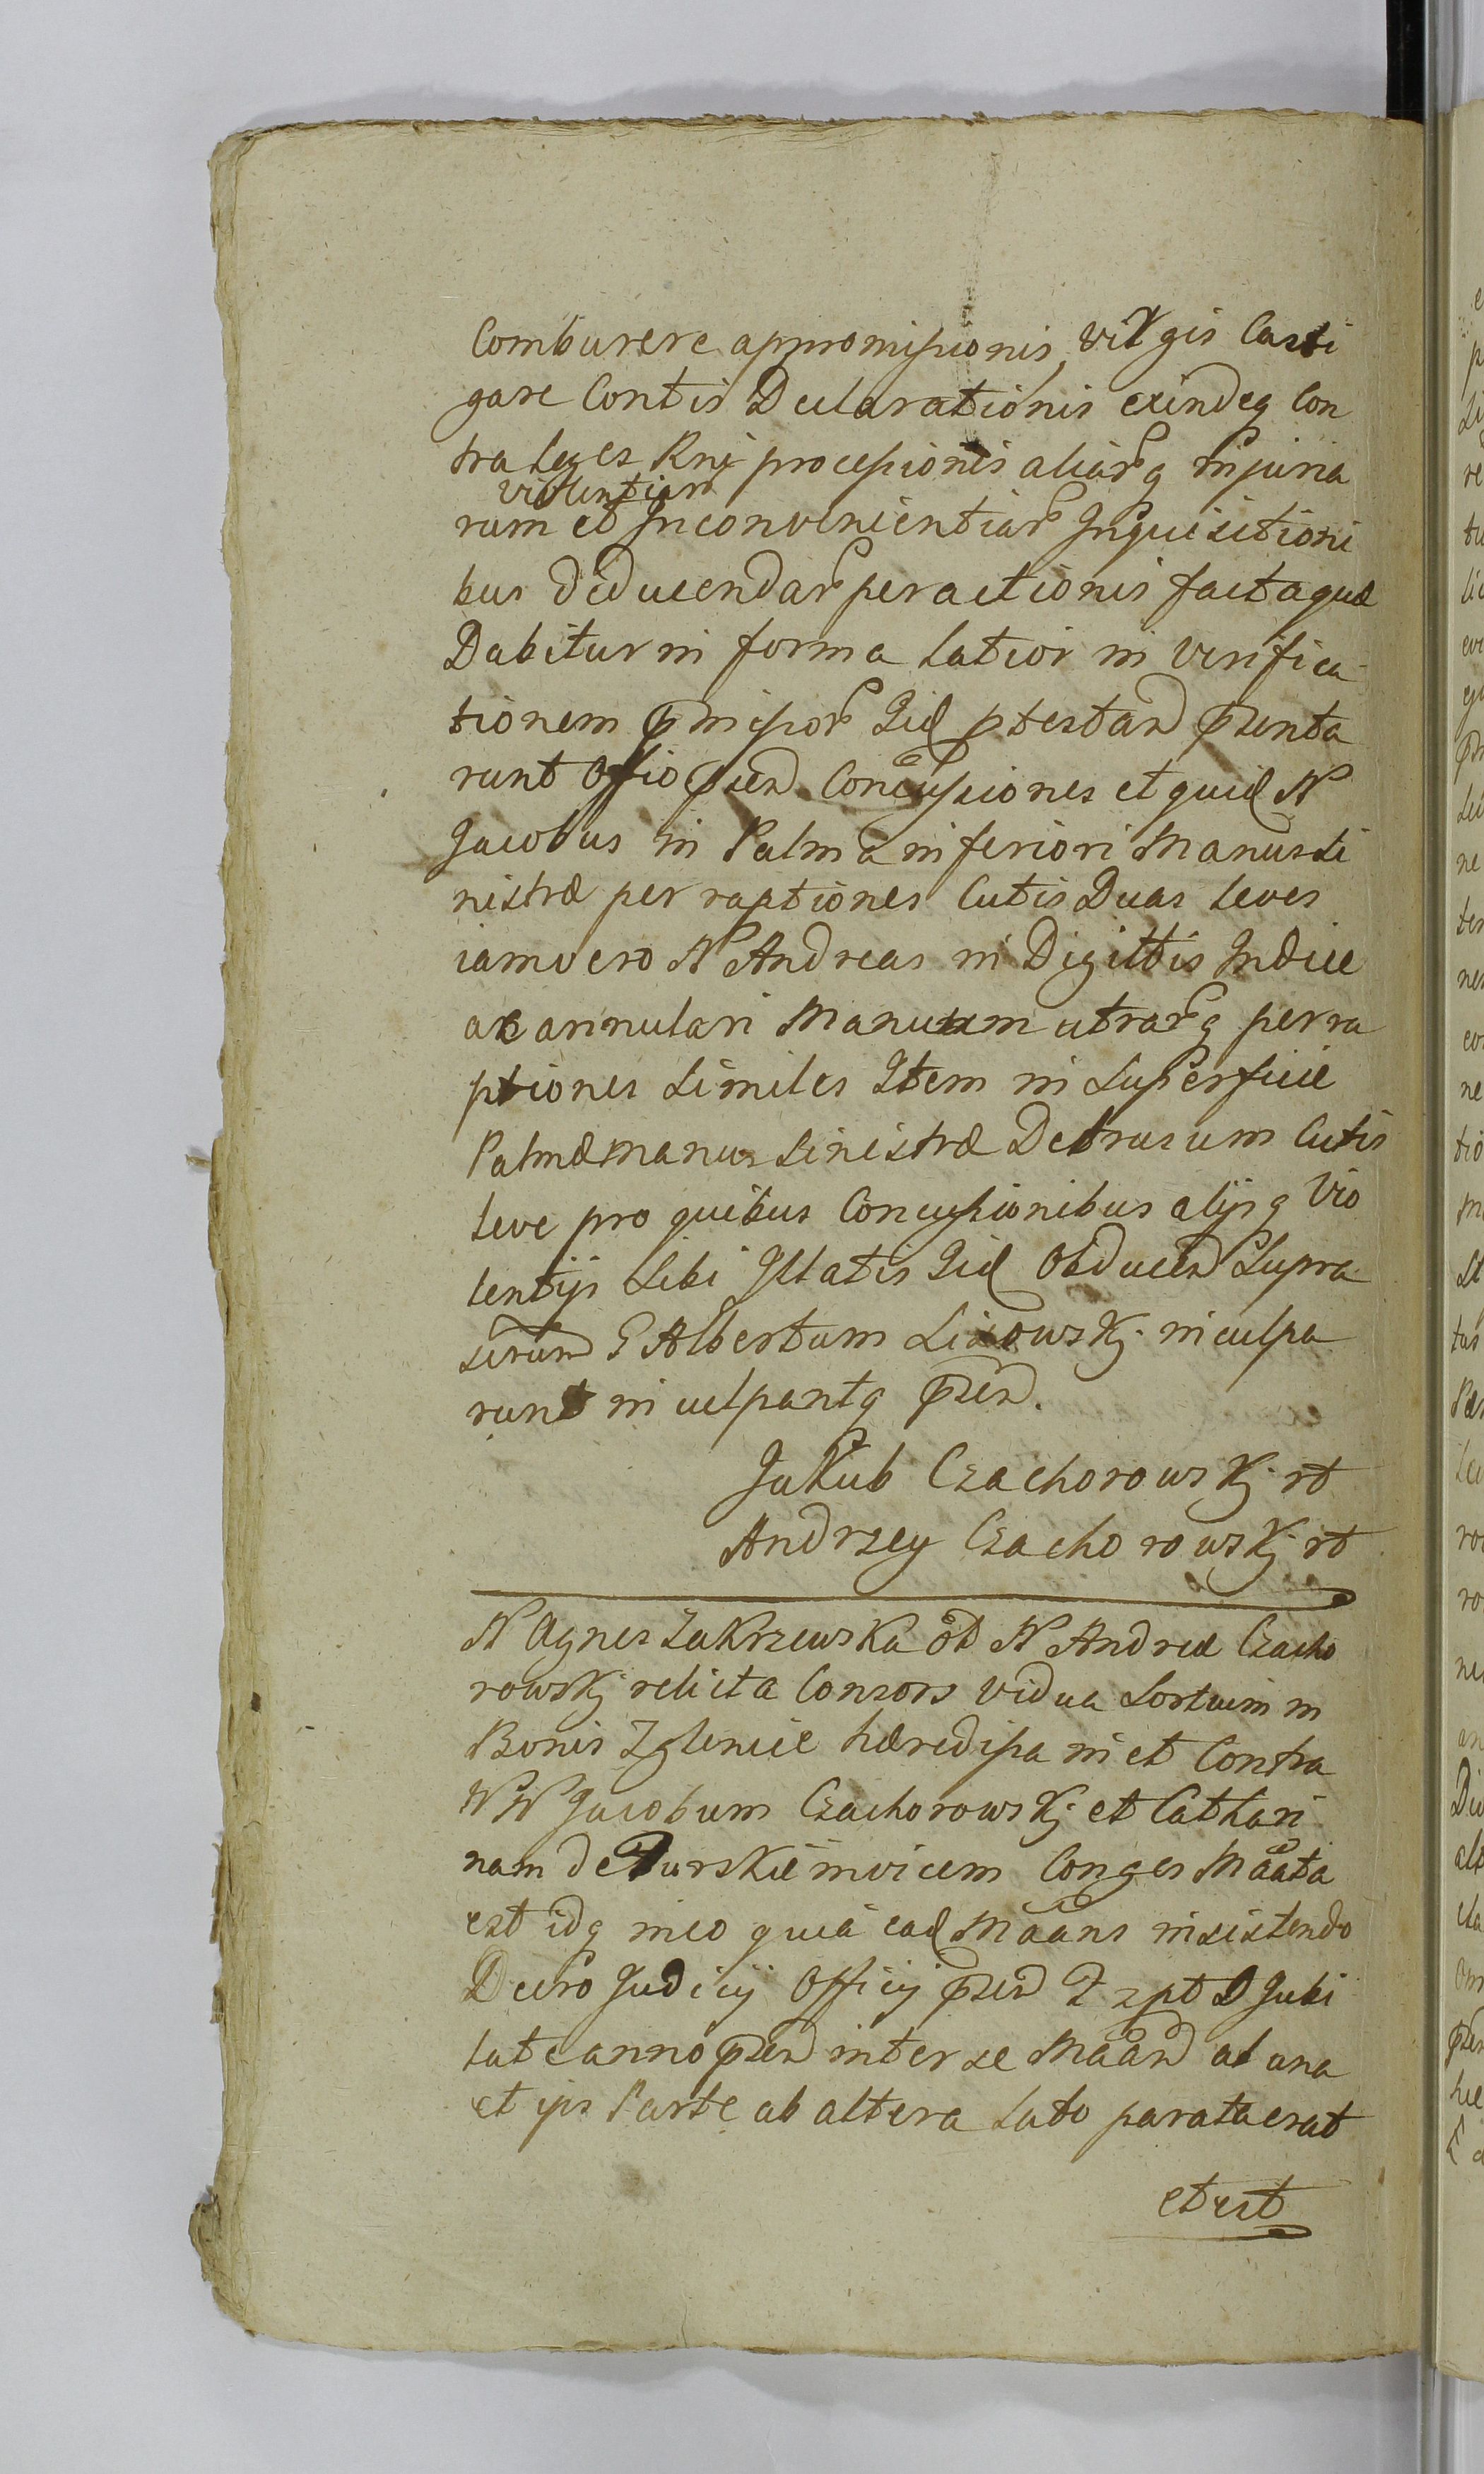 Comburere appromissionis, virgis Casti
gare Contis Declarationis exindeq Con
tra Leges Rni processionis aliarq injuria
violentiarũ
rum et Inconvenientiar Inquisitioni
bus deducendar peractionis facta quæ
Dabitur in forma Latior in verifica
tionem pmissor Iid ptestan pzenta
runt Offio pzen Concussiones et quid N
Jacobus in Palma inferiori Manus Si
nistræ per raptiones Cutis Duas Leves
iam vero N Andreas in Digittis Indice
ac annulari Manuum utrarq perra
ptiones Similes Item in Superficie
Palmæ Manus Sinistræ Detrusum Cutis
Leve pro quibus Concussionibus alijsq Vio
lentijs Sibi Illatis Iid Obducen Supra
G Albertum Lisowskj inculpa
runt inculpantq pzen.
Jakub Czachorowskj rt
Andrzey Czachorowskj rt
N Agnes Zakrzewska od N Andreæ Czacho
rowskj relicta Consors vidua Sortium in
Bonis Zglenice hæredissa in et Contra
NN Jacobum Czachorowskj et Cathari
nam de Turskie invicem Conges Maata
est idq in eo quia ead Maans insistendo
Decro Judicij Officij pzen 2 zpt D Jubi
late anno pzen inter se Maan ab una
et ips Parte ab altera Lato parata erat
et est